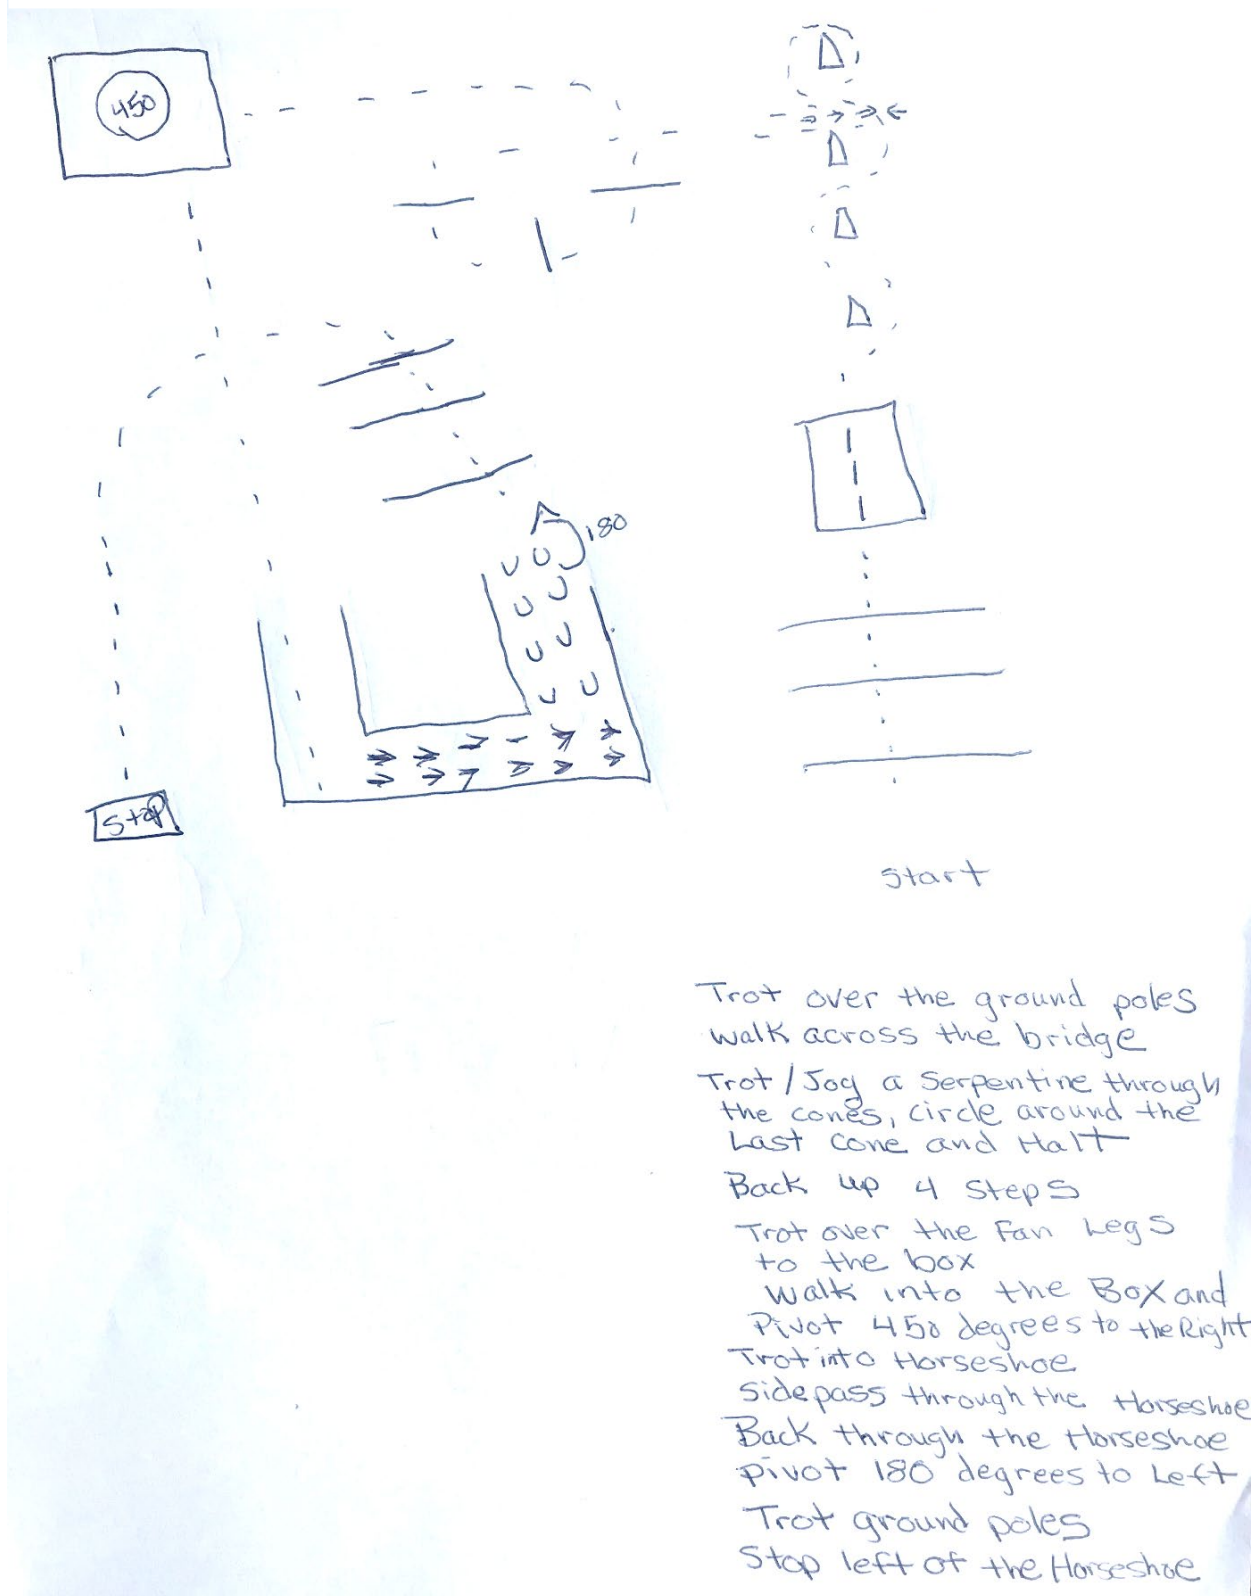 450
180
Stop
Start
Trot over the ground poles
walk across the bridge
Trot/Jog a Serpentine through
the cones, circle around the
Last cone and Halt
Back up 4 steps
Trot over the Fan Legs
to the box
walk into the Box and
Pivot 450 degrees to the Right
Trot into Horseshoe
sidepass through the Horseshoe
Back through the Horseshoe
pivot 180 degrees to Left
Trot ground poles
Stop left of the Horseshoe